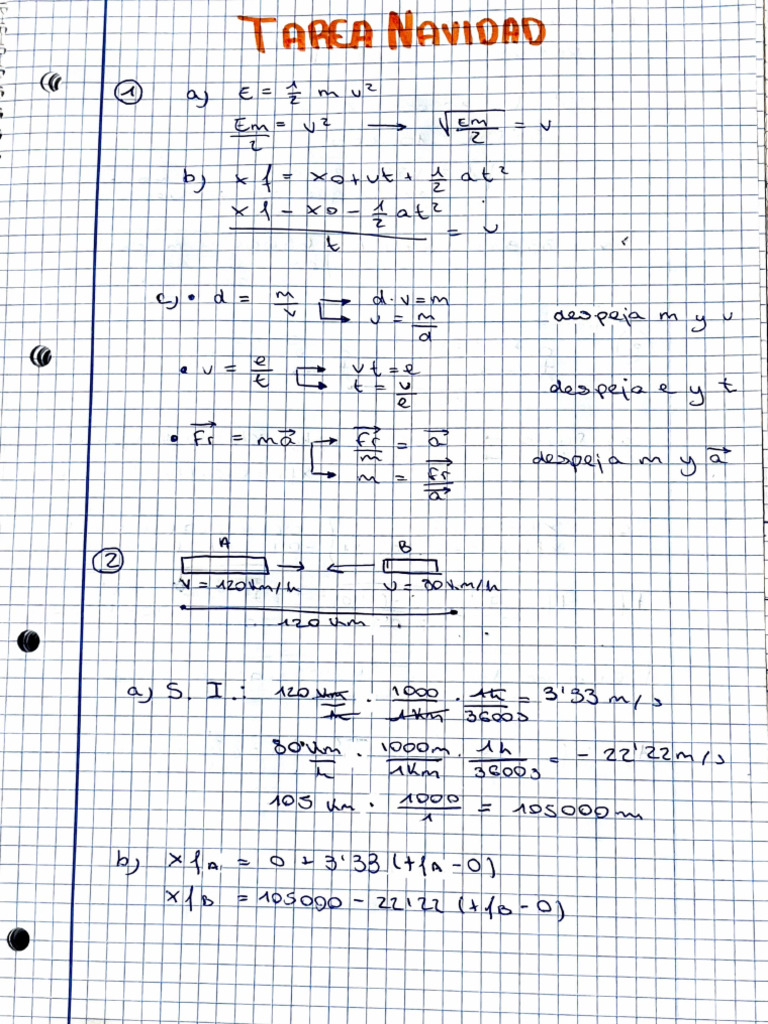 TAREA NAVIDAD
① a) E = 1/2 m v²
Em/2 = v² → √(Em/2) = v
b) xf = x0 + vt + 1/2 at²
(xf - x0 - 1/2 at²)/t = v
c) • d = m/v → d·v = m
→ v = m/d despeja m y v
• v = e/t → vt = e
→ t = v/e despeja e y t
• Fr = ma → Fr/m = a
→ m = Fr/a despeja m y a
② A B
v = 120 km/h v = 80 km/h
120 km
a) S. I.: 120 km/h · 1000/1km · 1h/3600s = 3'33 m/s
80 km/h · 1000m/1Km · 1h/3600s = - 22'22 m/s
105 km · 1000/1 = 105000 m
b) xfA = 0 + 3'33 (tfA - 0)
xfB = 105000 - 22'22 (tfB - 0)